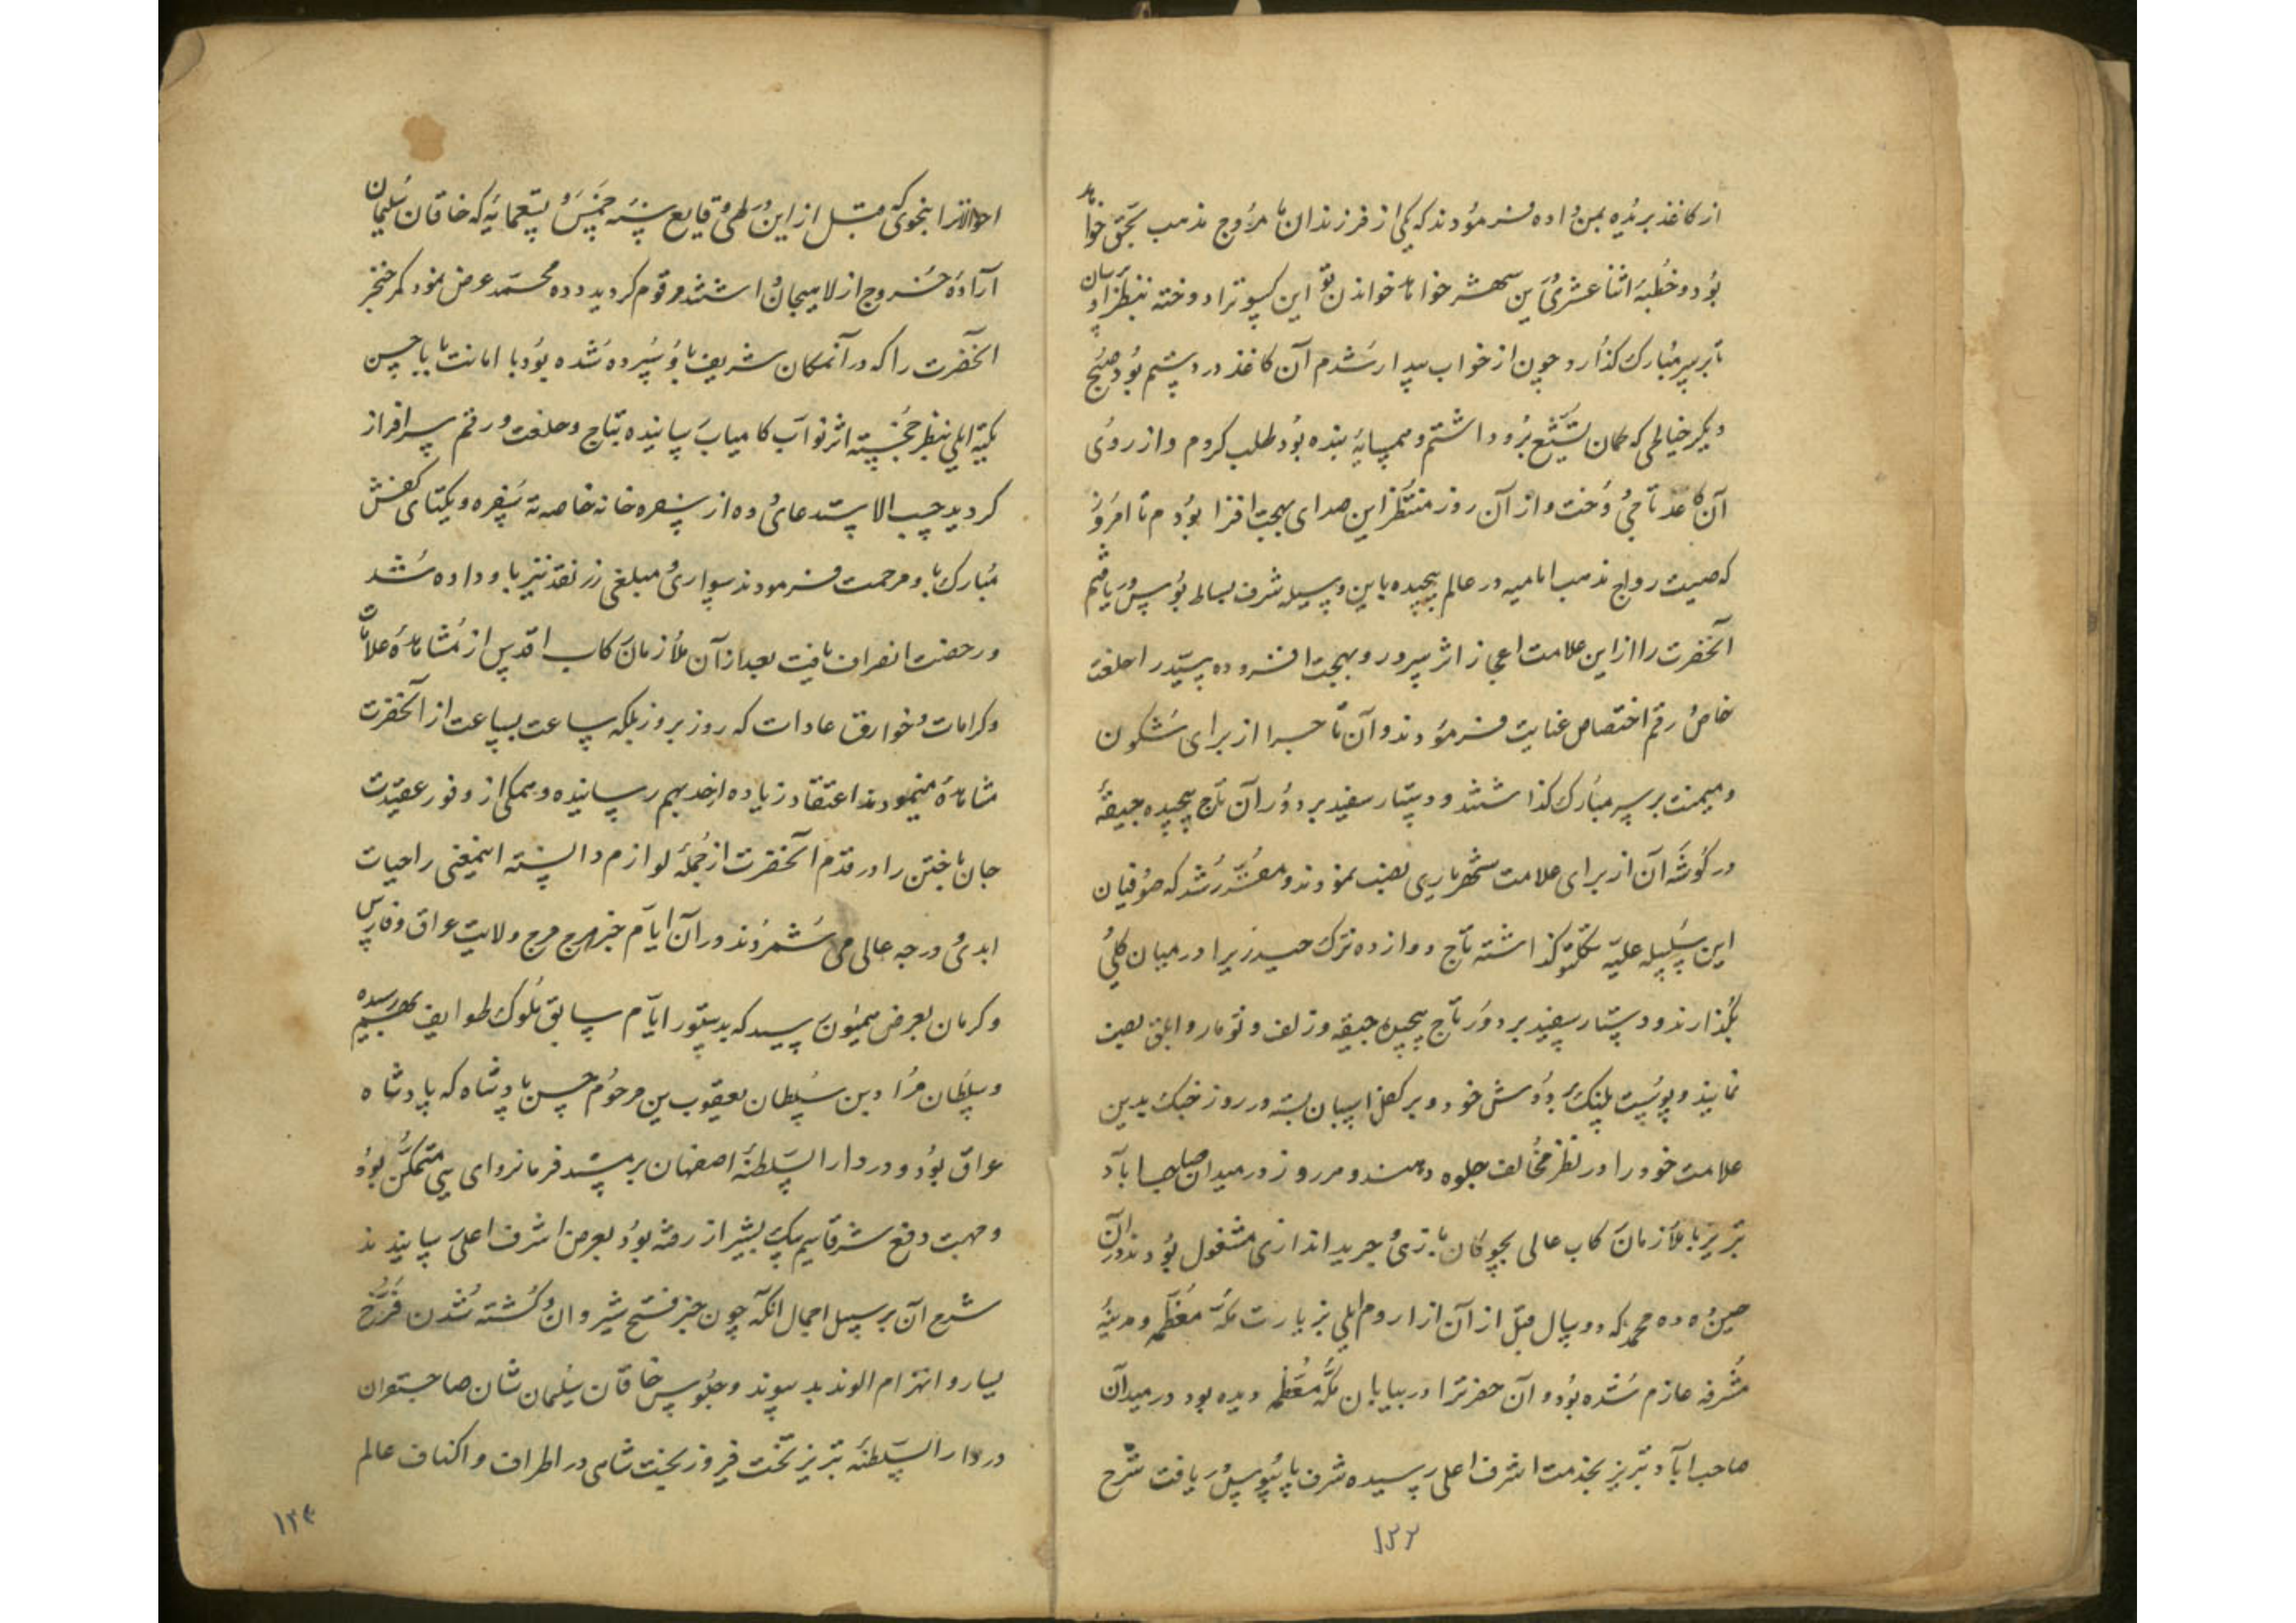 از کاغذ بریده بمن داده فرمودند که یکی از فرزندان ما مروج مذهب بحق خواهد
بود و خطبه اثنا عشری این شهر خواهد خواندن تو این کسوترا دوخته بنظر او برسان
تا بر سر مبارک گذارد چون از خواب بیدار شدم آن کاغذ در دستم بود صبح
دیگر خیاطی که گمان تشیع برو داشتم و همسایه بنده بود طلب کردم و از روی
آن کاغذ تاجی دوخت و از آن روز منتظر این صدای بهجت افزا بودم تا امروز
که صیت رواج مذهب امامیه در عالم پیچیده باین وسیله شرف بساط بوس دریافتم
آنحضرت را از این علامت اعجاز اثر سرور و بهجت افزوده سید را خلعت
خاص و رقم اختصاص عنایت فرمودند و آن تاجرا از برای شگون
و میمنت بر سر مبارک گذاشتند و دستار سفید بر دور آن تاج پیچیده جیقه
در گوشه آن از برای علامت شهریاری نصب نمودند و مقرر شد که صوفیان
این سلسله علیه گذاشته تاج دوازده ترک حیدریرا در میان کلی
بگذارند و دستار سفید بر دور تاج پیچیده جیقه و زلف و تومار و ابلق نصب
نمایند و پوست پلنگ بدوش خود و بر کفل اسبان بسته در روز جنگ بدین
علامت خود را در نظر مخالف جلوه دهند و هر روز در میدان صاحب آباد
تبریز با ملازمان رکاب عالی بچوگان بازی و جرید اندازی مشغول بودند در آن
حین ده ده محمد که دو سال قبل از آن از اروم ایلی بزیارت مکه معظمه و مدینه
مشرفه عازم شده بود و آن حضرترا در بیابان مکه معظمه دیده بود در میدان
صاحب آباد تبریز بخدمت اشرف اعلی رسیده شرف پایبوس دریافت شرح
۱۲۲
احوالاترا بنحوی که قبل از این در طی وقایع سنه خمس و تسعمایه که خاقان سلیمان
اراده خروج از لاهیجان داشتند مرقوم گردید دده محمد عرض نمود کمر خنجر
آنحضرت را که در آنمکان شریف باو سپرده شده بود با امانت بابا حسن
تکیه ایلی بنظر خجسته اثر نواب کامیاب رسانیده بتاج و خلعت و رقم سرافراز
گردید حسب الاستدعای دده از سفره خانه خاصه ته سفره و یکتای کفش
مبارک باو مرحمت فرمودند سواری و مبلغی زر نقد نیز باو داده شد
و رخصت انصراف یافت بعد از آن ملازمان رکاب اقدس از مشاهده علامات
و کرامات و خوارق عادات که روز بروز بلکه ساعت بساعت از آنحضرت
مشاهده مینمودند اعتقاد زیاده از حد بهم رسانیده و همگی از وفور عقیدت
جان باختن را در قدم آنحضرت از جمله لوازم دانسته اینمعنی را حیات
ابدی و درجه عالی می شمردند و در آن ایام خبر هرج مرج ولایت عراق و فارس
و کرمان بعرض همیون رسید که بدستور ایام سابق ملوک طوایف بهم رسیده
و سلطان مراد بن سلطان یعقوب بن مرحوم حسن پادشاه که پادشاه
عراق بود و در دار السلطنه اصفهان بر مسند فرمانروای یی متمکن بود
و جهت دفع شر قاسم بیک بشیراز رفته بود بعرض اشرف اعلی رسانیدند
شرح آن بر سبیل اجمال آنکه چون خبر فتح شیروان و کشته شدن فرخ
یسار و انهزام الوند بد پیوند و جلوس خاقان سلیمان شان صاحبقران
در دار السلطنه تبریز بتخت فیروز بخت شاهی در اطراف و اکناف عالم
۱۲۳